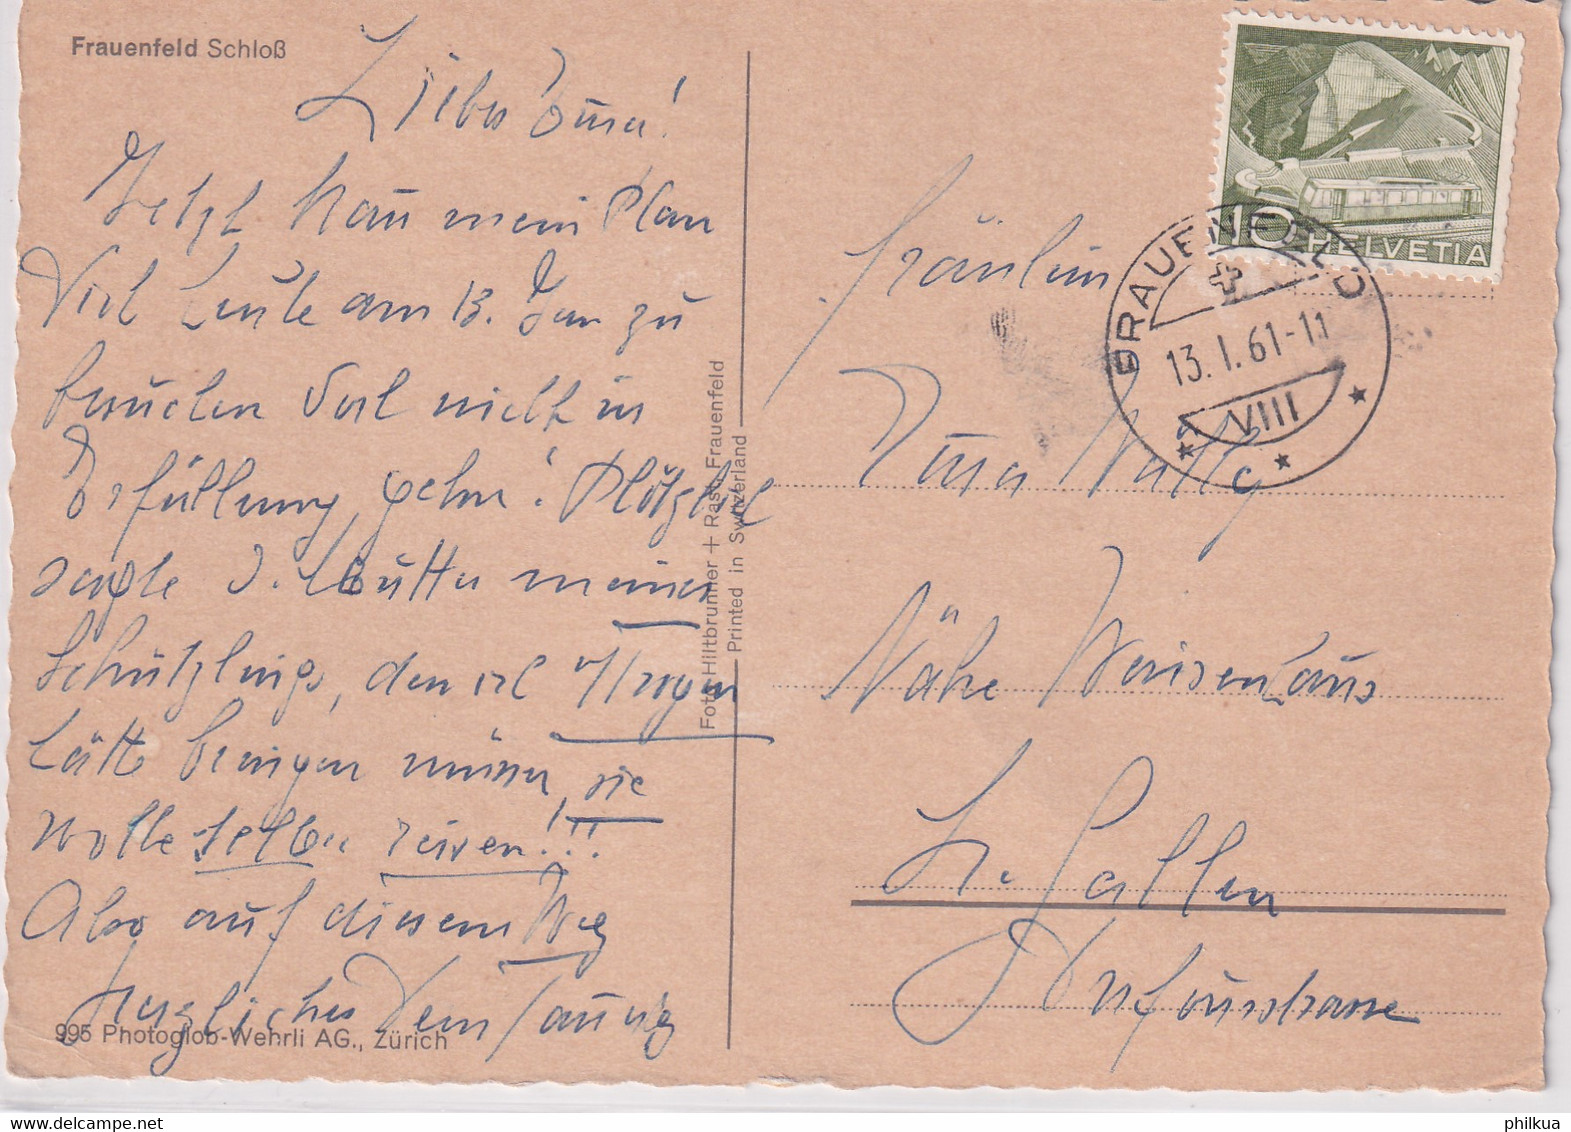 Frauenfeld Schloß
Liebes
Jetzt kann mein Plan
Leute am 13. Jan zu
besuchen nicht in
Erfüllung gehn! Plötzlich
sagte d. Mutter meiner
Schützlinge, den ich Morgen
hätte bringen müssen, sie
wolle selber reisen!!!
Also auf diesem Weg
herzlichen
995 Photoglob-Wehrli AG., Zürich
Foto Hiltbrunner + Rast, Frauenfeld
Printed in Switzerland
10 HELVETIA
FRAUENFELD
13. I. 61-11
VIII
Fräulein
Nähe Waisenhaus
St. Gallen
philkua.com